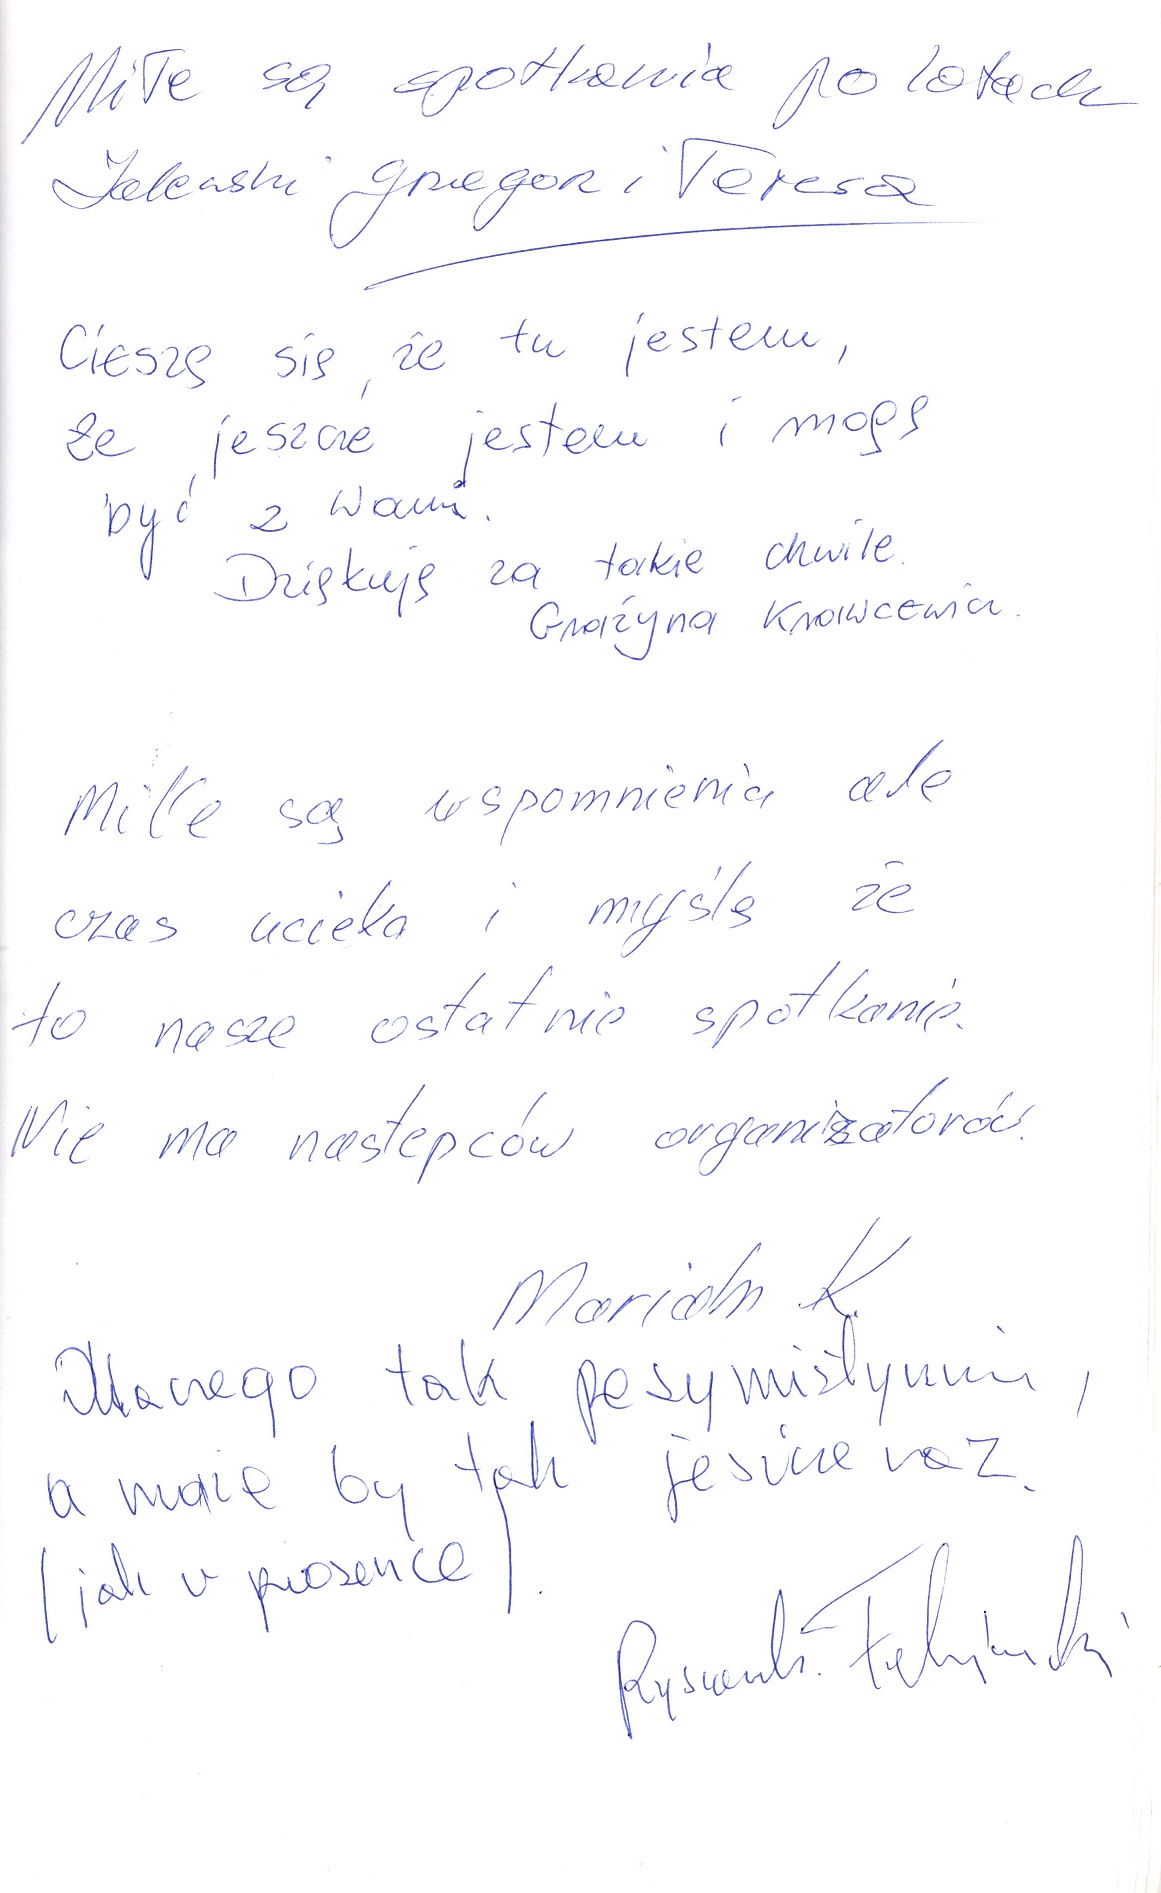 Miłe są spotkania po latach
Grzegorz i Teresa
Cieszę się, że tu jestem,
że jeszcze jestem i mogę
być z Wami.
Dziękuję za takie chwile.
Grażyna Krawcewicz.
Miłe są wspomnienia ale
czas ucieka i myślę że
to nasze ostatnie spotkanie.
Nie ma nastepców organizatorów.
Marian K.
Dlaczego tak pesymistycznie,
a może by tak jeszcze raz.
(jak w piosence).
Ryszard